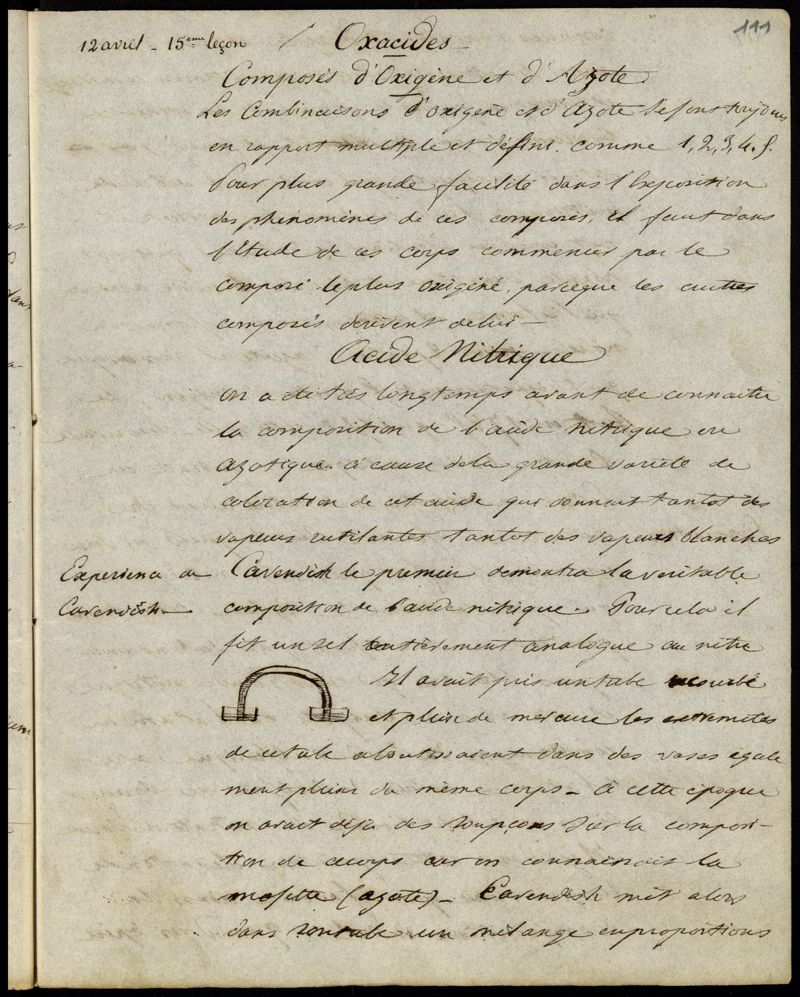 111
12 avril - 15ème leçon / Oxacides -
Composés d'Oxigène et d'Azote
Les Combinaisons d'oxigène et d'azote se font toujours
en rapport multiple et défini. comme 1, 2, 3, 4, 5.
Pour plus grande facilité dans l'Exposition
des phenomènes de ces composés, il faut dans
l'étude de ces corps commencer par le
composé le plus oxigéné, parceque les autres
composés derivent de lui -
Acide Nitrique
on a été très longtemps avant de connaitre
la composition de l'acide nitrique ou
azotique. à cause de la grande varieté de
coloration de cet acide qui donnait tantot des
vapeurs rutilantes tantot des vapeurs blanches
Experience de
Cavendish -
Cavendish le premier demontra la veritable
composition de l'acide nitrique. Pour cela il
fit un sel entièrement analogue au nitre
Il avait pris un tube recourbé
et plein de mercure les extremités
de ce tube aboutissaient dans des vases egale
ment pleins du même corps - à cette époque
on avait déja des soupçons sur la composi-
tion de ce corps car on connaissait la
mofette (azote) - Cavendish mit alors
dans son tube un mélange en proportions